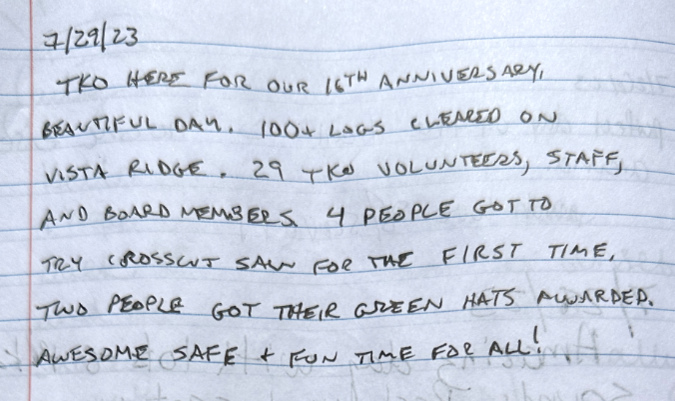 7/29/23
TKO HERE FOR OUR 16TH ANNIVERSARY,
BEAUTIFUL DAY. 100+ LOGS CLEARED ON
VISTA RIDGE. 29 TKO VOLUNTEERS, STAFF,
AND BOARD MEMBERS 4 PEOPLE GOT TO
TRY CROSSCUT SAW FOR THE FIRST TIME.
TWO PEOPLE GOT THEIR GREEN HATS AWARDED.
AWESOME SAFE + FUN TIME FOR ALL!